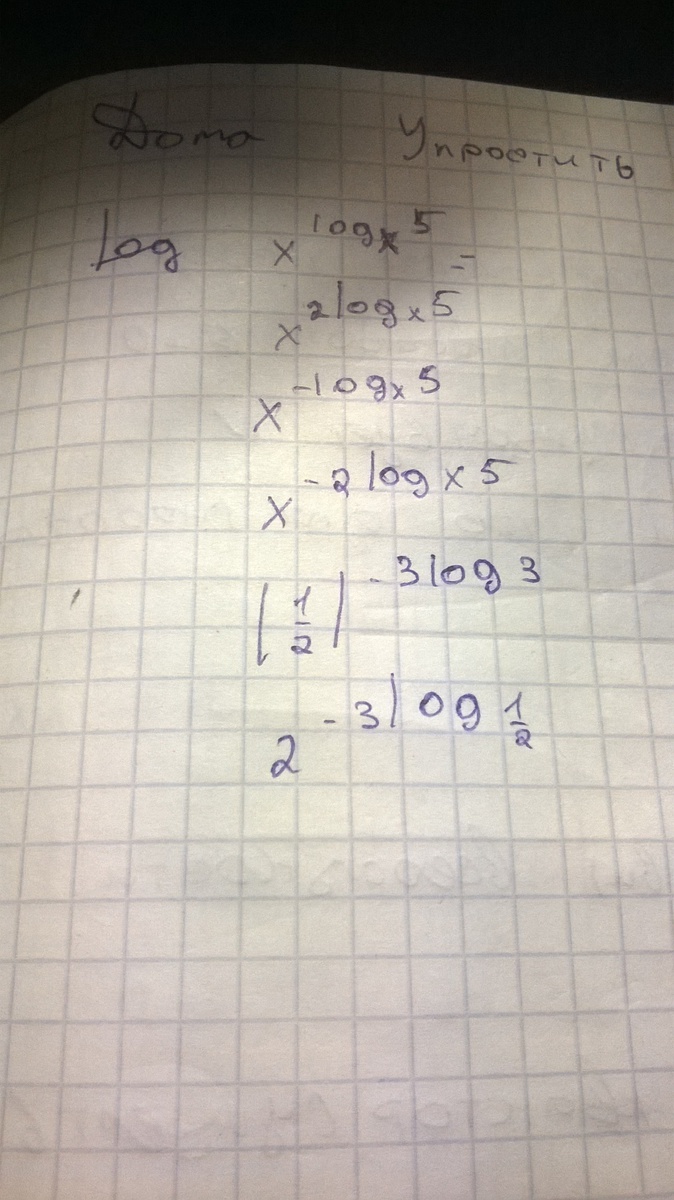 Дома Упростить
Log x^logₓ5 =
x^2logₓ5
x^-logₓ5
x^-2logₓ5
(1/2)^-3log3
2^-3log 1/2